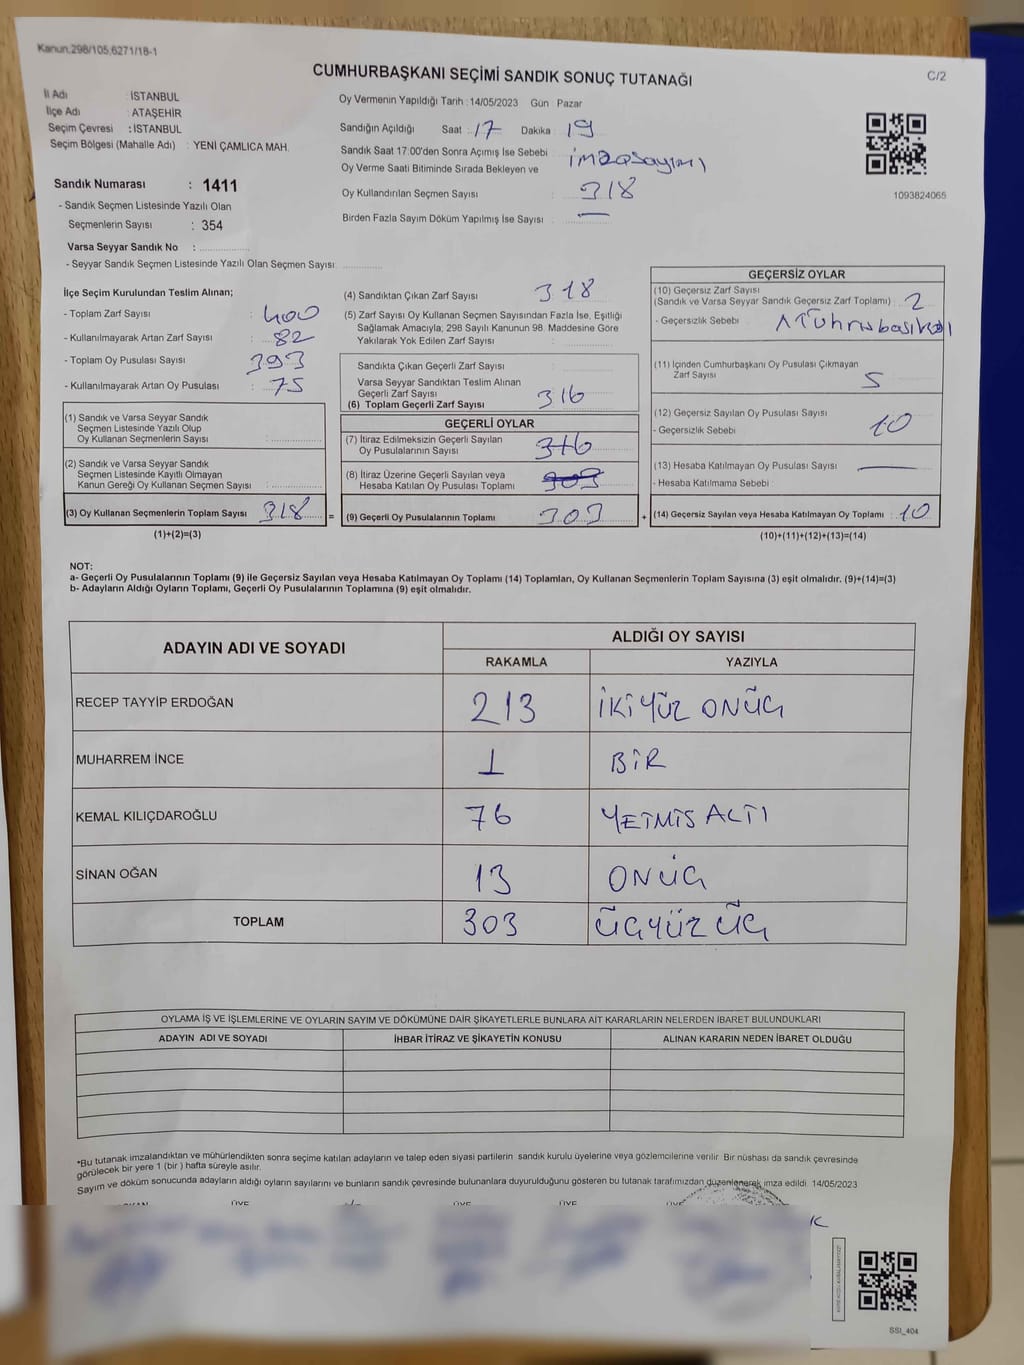 Kanun,298/105,6271/18-1
C/2
CUMHURBAŞKANI SEÇİMİ SANDIK SONUÇ TUTANAĞI
İl Adı : İSTANBUL
İlçe Adı : ATAŞEHİR
Seçim Çevresi : İSTANBUL
Seçim Bölgesi (Mahalle Adı) : YENİ ÇAMLICA MAH.
Sandık Numarası : 1411
- Sandık Seçmen Listesinde Yazılı Olan
Seçmenlerin Sayısı : 354
Varsa Seyyar Sandık No :
- Seyyar Sandık Seçmen Listesinde Yazılı Olan Seçmen Sayısı:
Oy Vermenin Yapıldığı Tarih : 14/05/2023 Gün Pazar
Sandığın Açıldığı Saat : 17 Dakika : 19
Sandık Saat 17:00'den Sonra Açımış İse Sebebi : imzasayımı
Oy Verme Saati Bitiminde Sırada Bekleyen ve
Oy Kullandırılan Seçmen Sayısı : 318
Birden Fazla Sayım Döküm Yapılmış İse Sayısı : —
1093824065
İlçe Seçim Kurulundan Teslim Alınan;
- Toplam Zarf Sayısı : 400
- Kullanılmayarak Artan Zarf Sayısı : 82
- Toplam Oy Pusulası Sayısı : 393
- Kullanılmayarak Artan Oy Pusulası : 75
(1) Sandık ve Varsa Seyyar Sandık
Seçmen Listesinde Yazılı Olup
Oy Kullanan Seçmenlerin Sayısı :
(2) Sandık ve Varsa Seyyar Sandık
Seçmen Listesinde Kayıtlı Olmayan
Kanun Gereği Oy Kullanan Seçmen Sayısı :
(3) Oy Kullanan Seçmenlerin Toplam Sayısı : 318
(1)+(2)=(3)
(4) Sandıktan Çıkan Zarf Sayısı : 318
(5) Zarf Sayısı Oy Kullanan Seçmen Sayısından Fazla İse, Eşitliği
Sağlamak Amacıyla; 298 Sayılı Kanunun 98. Maddesine Göre
Yakılarak Yok Edilen Zarf Sayısı :
Sandıkta Çıkan Geçerli Zarf Sayısı :
Varsa Seyyar Sandıktan Teslim Alınan
Geçerli Zarf Sayısı :
(6) Toplam Geçerli Zarf Sayısı : 316
GEÇERLİ OYLAR
(7) İtiraz Edilmeksizin Geçerli Sayılan
Oy Pusulalarının Sayısı : 316
(8) İtiraz Üzerine Geçerli Sayılan veya
Hesaba Katılan Oy Pusulası Toplamı : 303
= (9) Geçerli Oy Pusulalarının Toplamı : 303
GEÇERSİZ OYLAR
(10) Geçersiz Zarf Sayısı
(Sandık ve Varsa Seyyar Sandık Geçersiz Zarf Toplamı) : 2
- Geçersizlik Sebebi :
(11) İçinden Cumhurbaşkanı Oy Pusulası Çıkmayan
Zarf Sayısı : 5
(12) Geçersiz Sayılan Oy Pusulası Sayısı : 10
- Geçersizlik Sebebi :
(13) Hesaba Katılmayan Oy Pusulası Sayısı : —
- Hesaba Katılmama Sebebi :
+ (14) Geçersiz Sayılan veya Hesaba Katılmayan Oy Toplamı : 10
(10)+(11)+(12)+(13)=(14)
NOT:
a- Geçerli Oy Pusulalarının Toplamı (9) ile Geçersiz Sayılan veya Hesaba Katılmayan Oy Toplamı (14) Toplamları, Oy Kullanan Seçmenlerin Toplam Sayısına (3) eşit olmalıdır. (9)+(14)=(3)
b- Adayların Aldığı Oyların Toplamı, Geçerli Oy Pusulalarının Toplamına (9) eşit olmalıdır.
ADAYIN ADI VE SOYADI
ALDIĞI OY SAYISI
RAKAMLA YAZIYLA
RECEP TAYYİP ERDOĞAN 213 İKİYÜZ ONÜÇ
MUHARREM İNCE 1 BİR
KEMAL KILIÇDAROĞLU 76 YETMİŞ ALTI
SİNAN OĞAN 13 ONÜÇ
TOPLAM 303 ÜÇYÜZ ÜÇ
OYLAMA İŞ VE İŞLEMLERİNE VE OYLARIN SAYIM VE DÖKÜMÜNE DAİR ŞİKAYETLERLE BUNLARA AİT KARARLARIN NELERDEN İBARET BULUNDUKLARI
ADAYIN ADI VE SOYADI İHBAR İTİRAZ VE ŞİKAYETİN KONUSU ALINAN KARARIN NEDEN İBARET OLDUĞU
*Bu tutanak imzalandıktan ve mühürlendikten sonra seçime katılan adayların ve talep eden siyasi partilerin sandık kurulu üyelerine veya gözlemcilerine verilir. Bir nüshası da sandık çevresinde
görülecek bir yere 1 (bir) hafta süreyle asılır.
Sayım ve döküm sonucunda adayların aldığı oyların sayılarını ve bunların sandık çevresinde bulunanlara duyurulduğunu gösteren bu tutanak tarafımızdan düzenlenerek imza edildi. 14/05/2023
ÜYE ÜYE ÜYE ÜYE
SSI_404